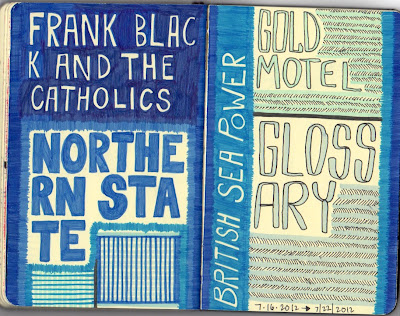 FRANK BLAC
K AND THE
CATHOLICS
NORTHE
RN STA
TE
BRITISH SEA POWER
GOLD
MOTEL
GLOSS
ARY
7-16-2012 → 7/22/2012